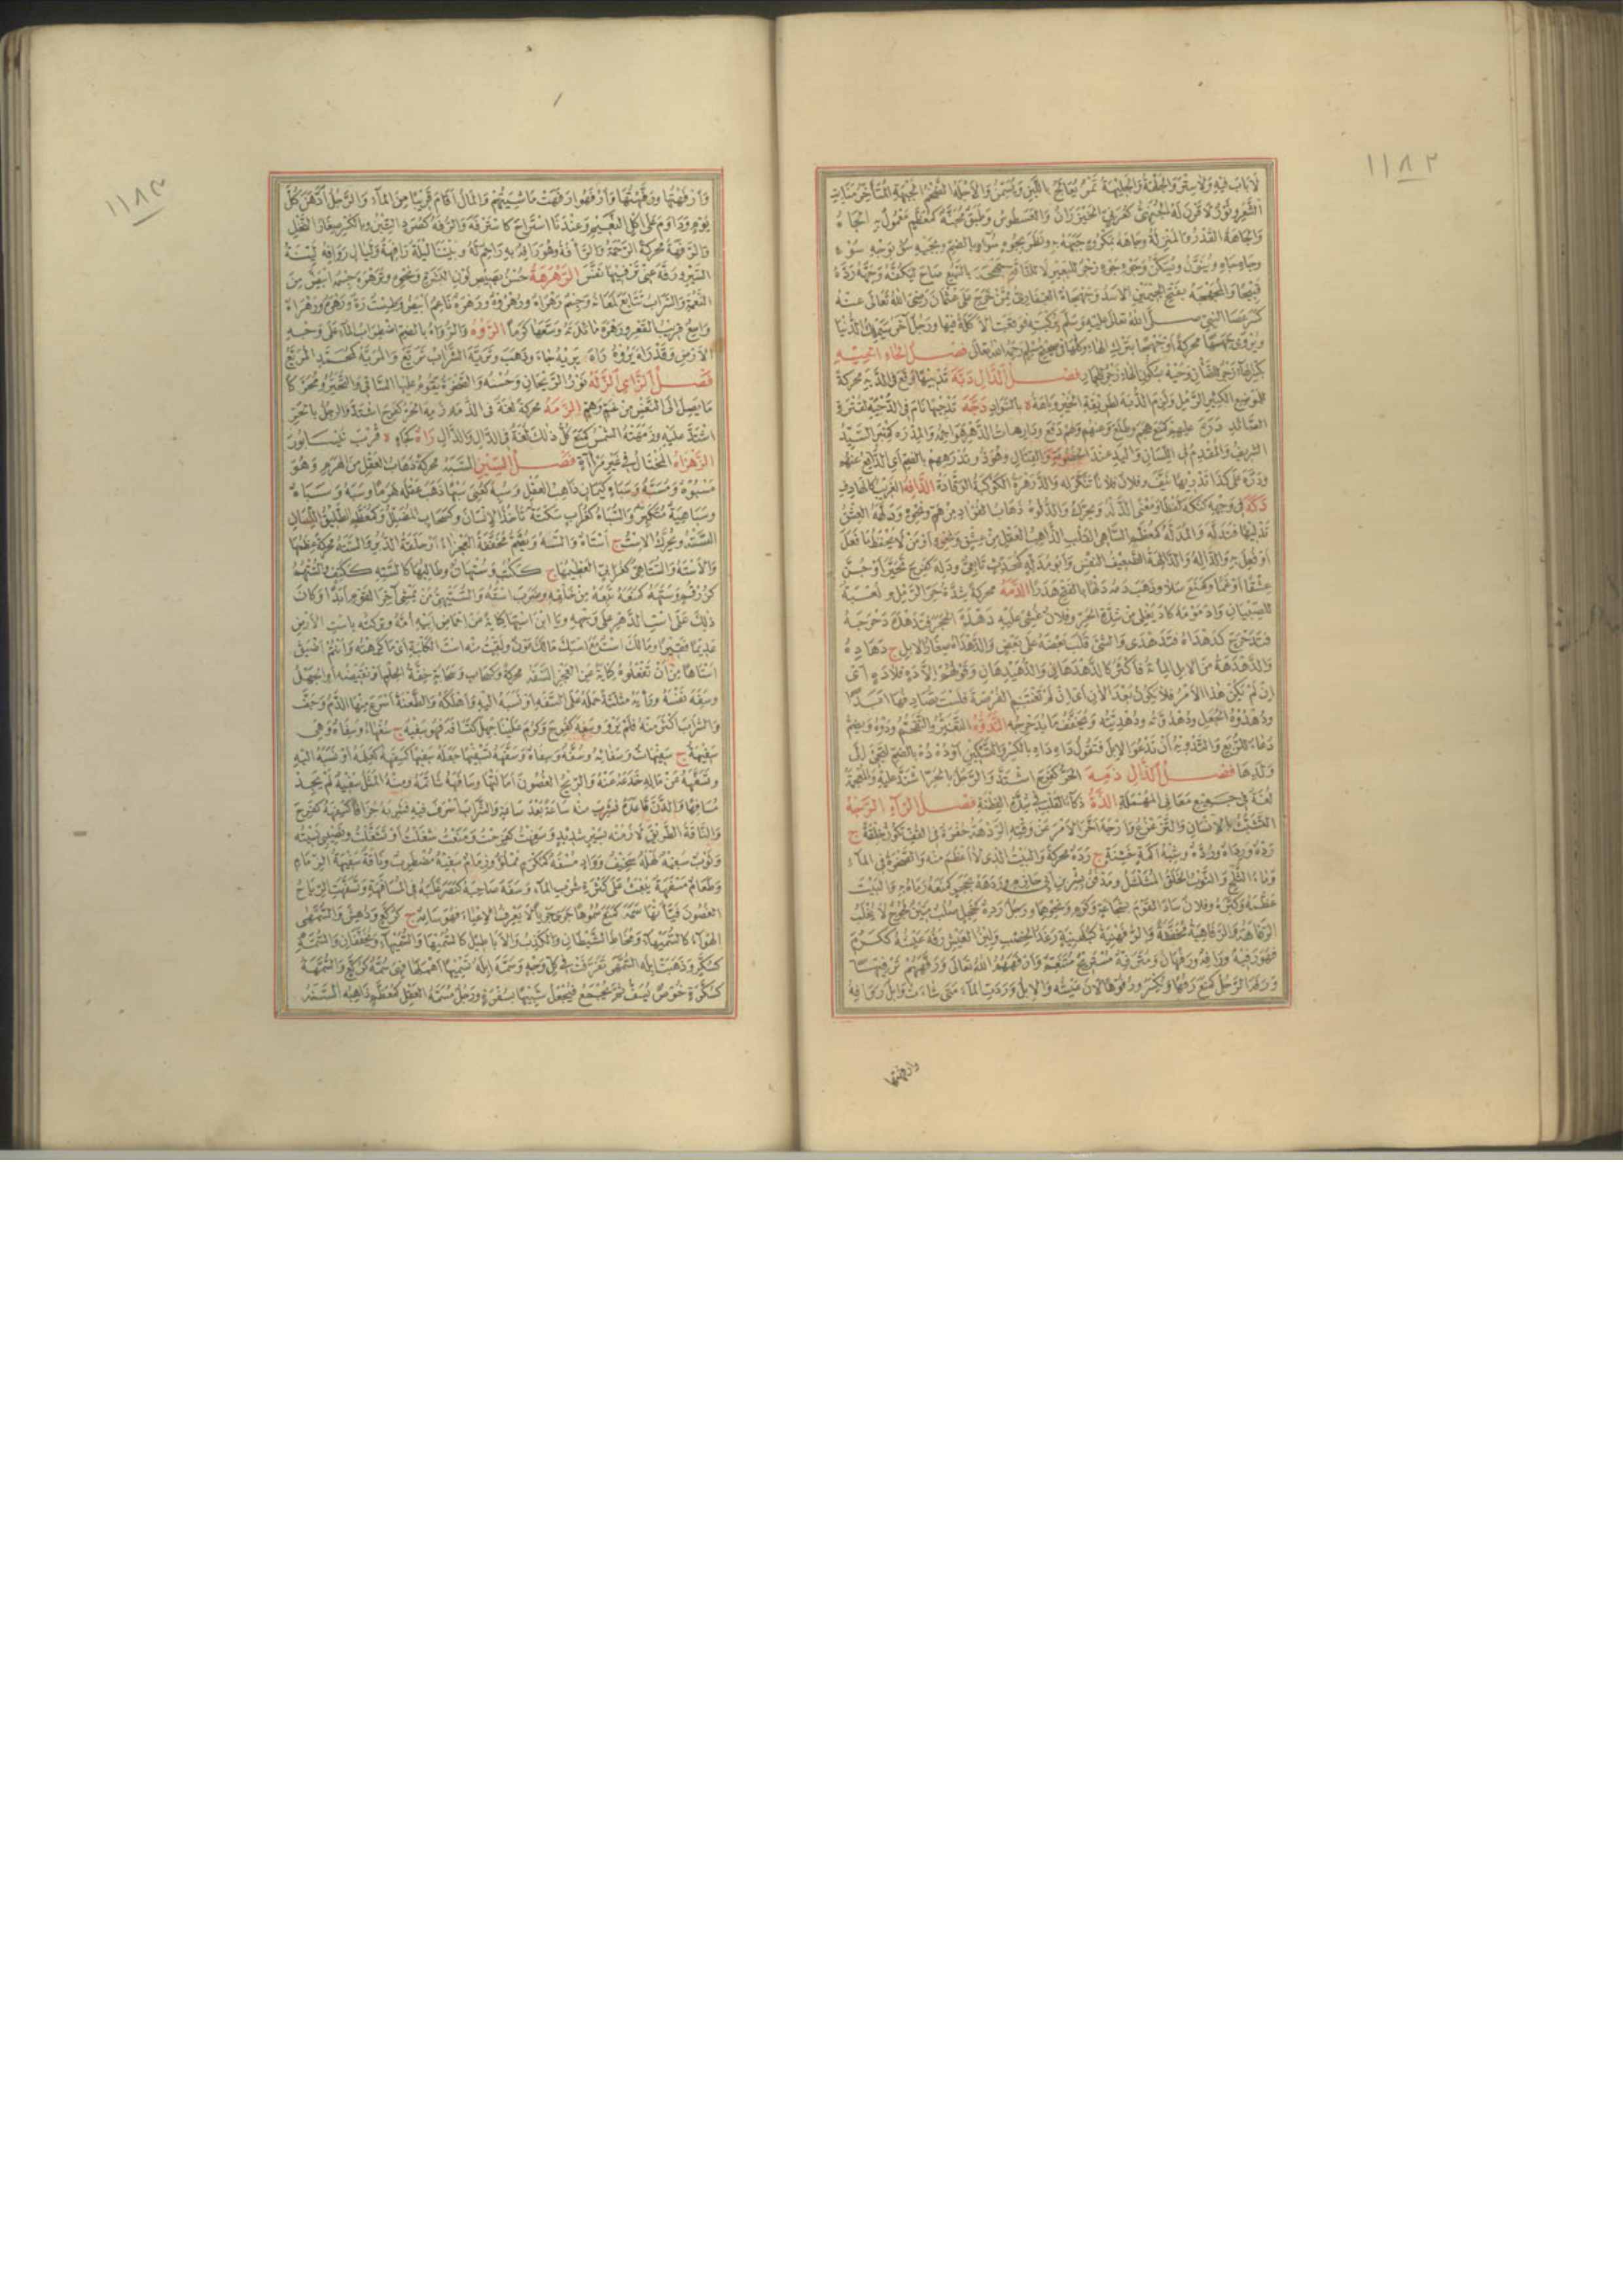 ١١٨٢
لا باب فيه ولا ستر والجلهة والجليهة تمر يعالج باللبن ويسمن والاجله الضخم الجبهة المتأخر منابت
الشعر وثور لا قرن له الجنهي كعرني الخيزران والعسطوس وطبق مجنه كمعظم معمول به الجاه
والجاهة القدر والمنزلة وجاهه بمكروه جبهه به ونظر بجوه سوء بالضم وبجيه سوء بوجه سوء
كسر عصا النبي صلى الله تعالى عليه وسلم بركبته فوقعت الاكلة فيها ورجل آخر سيملك الدنيا
فصل الدال دبه تدبيها وقع في الدبه محركة
للموضع الكثير الرمل ولزم الدبه لطريقة الخير ه بالسواد دجه تدجيها نام في الدجية لقترة
الصائد دره عليهم كمنع هجم وطلع وعنهم ولهم دفع ودارهات الدهر هواجمه والمدره كمنبر السيد
الشريف والمقدم في اللسان واليد عند الخصومة والقتال وهو ذو تدرههم بالضم اي الدافع عنهم
ودره على كذا تدريها نيف وفلان فلانا تنكر له والدرهرهة الكوكبة الوقادة الدافه الغريب كالهادف
دكه في وجهه كنكه لفظا ومعنى الدله ويحرك والدلوه ذهاب الفؤاد من هم ونحوه ودلهه العشق
تدليها فتدله والمدله كمعظم الساهي القلب الذاهب العقل من عشق ونحوه او من لا يحفظ ما فعل
او فعل به والداله والدالهة الضعيف النفس وابو مدله كمحدث تابعي ودله كفرح تحير او جن
عشقا او غما وكمنع سلا وذهب دمه دلها بالفتح هدرا الدمه محركة شدة حر الرمل ولعبة
للصبيان وادمومه كاد يغلي من شدة الحر وفلان غشي عليه دهده الحجر فتدهده دحرجه
فتدحرج كدهداه فتدهدى والشيء قلب بعضه على بعض والدهداه صغار الابل ج دهاده
والدهدهة من الابل المائة فاكثر كالدهدهان والدهيدهان وقولهم الا ده فلا ده اي
ان لم يكن هذا الامر فلا يكون بعد الآن اي ان لم تغتنم الفرصة فلست تصادفها ابدا
ودهدوة الجعل ودهدوته ودهديته ويخفف ما يدحرجه التدوه التغير والتقحم ودوه ويضم
دعاء للربع والتدويه ان تدعو الابل فتقول داه داه بالكسر والتسكين او ده ده بالضم لتجيء الى
ولدها فصل الذال ذمه الحر كفرح اشتد والرجل بالحر اشتد عليه
لغة في جميع معاني المهملة الذه ذكاء القلب شدة الفطنة فصل الراء الرجه
التشبث بالانسان والتزعزع وارجه اخر الامر عن وقته الردهة حفرة في القف تكون خلقة ج
رده ورداه ورده وشبه اكمة خشنة ج رده محركة والبيت الذي لا اعظم منه والصخرة في الماء
وماء الثلج والثوب الخلق المسلسل
عظمه وكبره وفلان ساد القوم بشجاعة وكرم ونحوهما ورجل رده كخجل صلب متين لجوج لا يغلب
الرفاهة والرفاهية مخففة والرفهنية كبلهنية رغد الخصب ولين العيش رفه عيشه ككرم
فهو رفيه ورافه ورفهان ومترفه مستريح متنعم وارفههم الله تعالى ورفههم ترفيها
ورفه الرجل كمنع رفها ويكسر ورفوها لان عيشه والابل وردت الماء متى شاءت وابل روافه
وارفهتها
١١٨٣
وارفهتها ورفهتها وارفهوا رفهت ماشيتهم والمال اقام قريبا من الماء والرجل ادهن كل
يوم وداوم على اكل النعيم وعندنا استراح كاسترفه والرفه كصرد التبن وبالكسر صغار النخل
والرفهة محركة الرحمة والرأفة وهو رافه به راحم له وبيننا ليلة رافهة وليال روافه لينة
السير ورفه عني ترفيها نفس الرهرهة حسن بصيص لون البشرة ونحوه وترهره جسمه ابيض من
النعمة والسراب تتابع لمعانه وجسم رهراه ورهروه ورهره ناعم ابيض وطست رهره ورهراه
واسع قريب القعر ورهره مائدته وسعها كرما الروه والرواه بالضم اضطراب الماء على وجه
الارض وقد راه يروه راه يريه جاء وذهب وتريه السراب تريع والمريه كمحمد المريع
فصل الزاي الزله نور الريحان وحسنه والصخرة يقوم عليها الساقي والتحير ومحركة
ما يصل الى النفس من غم وهم الزمه محركة لغة في الدمه زمه الحر كفرح اشتد والرجل بالحر
اشتد عليه وزمهته الشمس كمنع كل ذلك لغة في الدال والذال زاه كجاه ه قرب نيسابور
الزهزاه المختال في غير مرآة فصل السين السبه محركة ذهاب العقل من الهرم وهو
مسبوه ومسبه وسباه كيمان ذاهب العقل وسبه كعني سبها ذهب عقله هرما وسبه وسباه
وسباهية متكبر والسباه كغراب سكتة تأخذ الانسان وكسحاب المضلل وكمعظم الطليق اللسان
السته ويحرك الاست ج استاه والسه ويضم مخففة العجز او حلقة الدبر والسته محركة عظمها
والاسته والستاهي كغرابي العظيمها ج ككتب وستهان وطالبها كالسته ككتف والستهم
كزرقم وستهه كمنعه تبعه من خلفه وضرب استه والستيهي من يمشي آخر القوم ابدا وكان
ذلك على است الدهر على وجهه ويا ابن استها كناية عن احماض ابيه امه وتركته باست الارض
عديما فقيرا ومالك است مع استك مالك عون ولقيت منه است الكلبة اي ما كرهته وانتم اضيق
استاها من ان تفعلوه كناية عن العجز السفه محركة وكسحاب وسحابة خفة الحلم او نقيضه او الجهل
وسفه نفسه ورأيه مثلثة حمله على السفه او نسبه اليه واهلكه والطعنة اسرع منها الدم وجف
والشراب اكثر منه فلم يرو وسفه كفرح وكرم علينا جهل كتسافه فهو سفيه ج سفهاء وسفاه وهي
سفيهة ج سفيهات وسفائه وسفه وسفاه وسفهه تسفيها جعله سفيها كسفهه كعلمه او نسبه اليه
وتسفهه عن ماله خدعه عنه والريح الغصون امالتها وسافهه شاتمه ومنه المثل سفيه لم يجد
مسافها والدن قاعده فشرب منه ساعة بعد ساعة والشراب اسرف فيه فشربه جزافا كسفهه كفرح
والناقة الطريق لازمته بسير شديد وسفهت كفرحت ومنعت شغلت او تشغلت ونصيبي نسيته
وثوب سفيه لهله سخيف وواد مسفه كمكرم مملوء وزمام سفيه مضطرب وناقة سفيهة الزمام
وطعام مسفهة يبعث على كثرة شرب الماء وسفه صاحبه كنصر غلبه في المسافهة وتسفهت الرياح
الغصون فيأتها سمه كمنع سموها جرى جريا لا يعرف الاعياء فهو سامه ج كركع ودهش والسمهى
الهواء كالسميهاء ومخاط الشيطان والكذب والاباطيل كالسميها والسميهاء ويخففان والسمه
كسكر وذهبت ابله السمهى تفرقت في كل وجه وسمه ابله تسميها اهملها فهي سمه كركع والسمهة
كسكرة خوص يسف ثم يجمع فيجعل شبيها بسفرة ورجل مسمه العقل كمعظم ذاهبه السنه